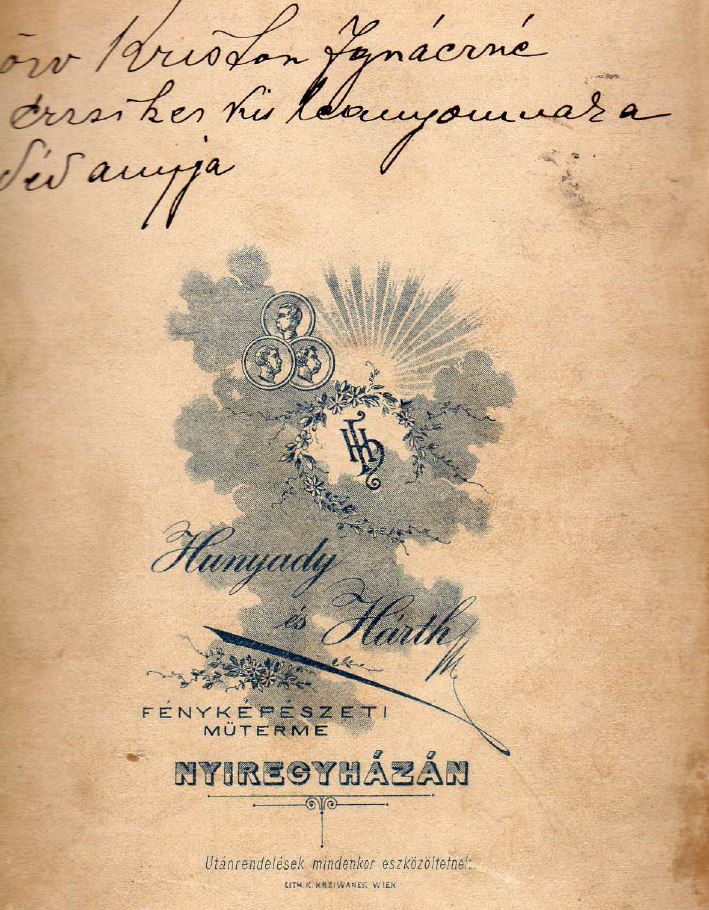 özv Kriston Ignáczné
Erzsikes kis leanyom
Déd anyja
HH
Hunyady
és Hárth
FÉNYKÉPÉSZETI
MŰTERME
NYIREGYHÁZÁN
Utánrendelések mindenkor eszközöltetnek.
LITH. K. KRZIWANEK WIEN